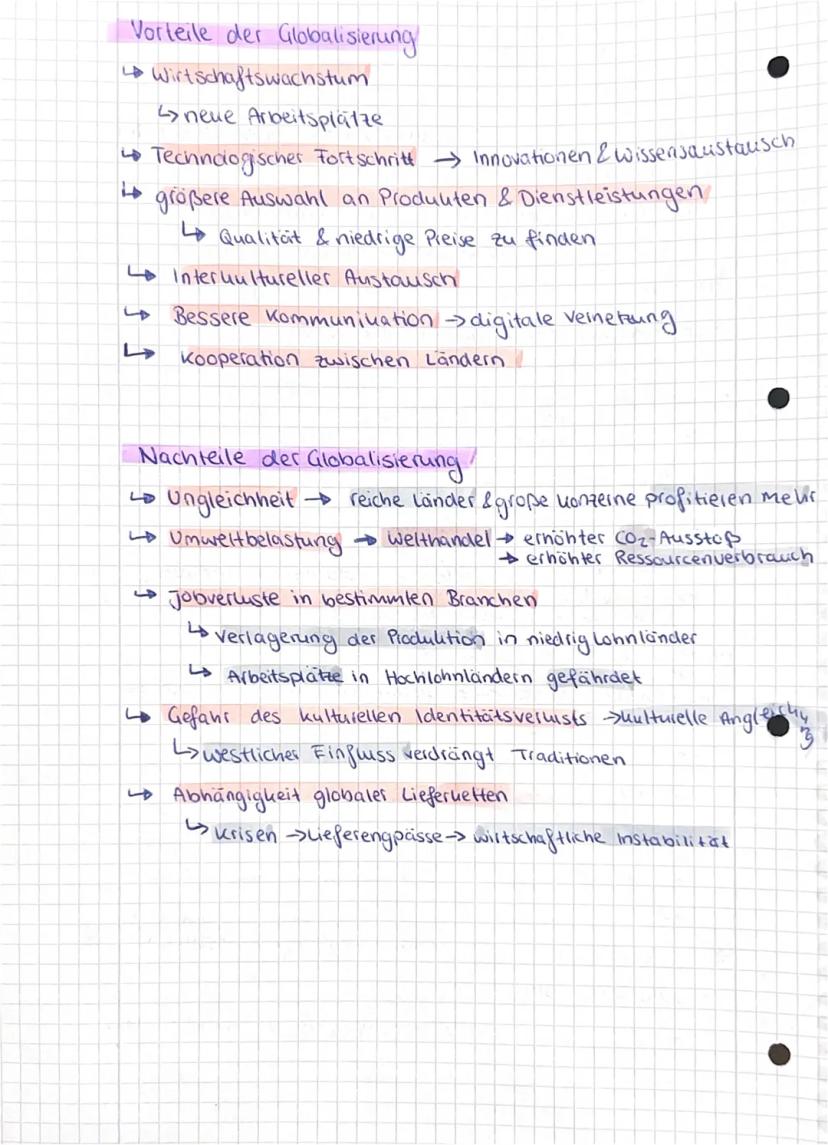 Vorteile der Globalisierung
↳ Wirtschaftswachstum
↳ neue Arbeitsplätze
↳ Technologischer Fortschritt → Innovationen & Wissensaustausch
↳ größere Auswahl an Produkten & Dienstleistungen
↳ Qualität & niedrige Preise zu finden
↳ Interkultureller Austausch
↳ Bessere Kommunikation → digitale Vernetzung
↳ Kooperation zwischen Ländern
Nachteile der Globalisierung
↳ Ungleichheit → reiche Länder & große Konzerne profitieren mehr
↳ Umweltbelastung → Welthandel → erhöhter CO₂-Ausstoß
→ erhöhter Ressourcenverbrauch
↳ Jobverluste in bestimmten Branchen
↳ Verlagerung der Produktion in niedriglohnländer
↳ Arbeitsplätze in Hochlohnländern gefährdet
↳ Gefahr des kulturellen Identitätsverlusts → kulturelle Angleichung
↳ westlicher Einfluss verdrängt Traditionen
↳ Abhängigkeit globaler Lieferketten
↳ Krisen → Lieferengpässe → wirtschaftliche Instabilität